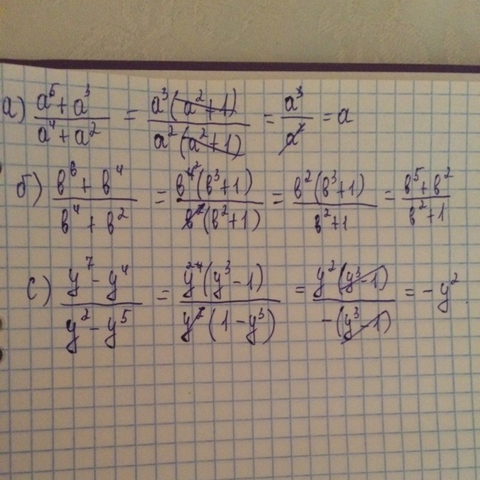 а) (a⁵ + a³)/(a⁴ + a²) = a³(a² + 1)/a²(a² + 1) = a³/a² = a
б) (b⁶ + b⁴)/(b⁴ + b²) = b⁴(b³ + 1)/b²(b² + 1) = b²(b³ + 1)/(b² + 1) = (b⁵ + b²)/(b² + 1)
с) (y⁷ - y⁴)/(y² - y⁵) = y⁴(y³ - 1)/y²(1 - y³) = y²(y³ - 1)/-(y³ - 1) = -y²